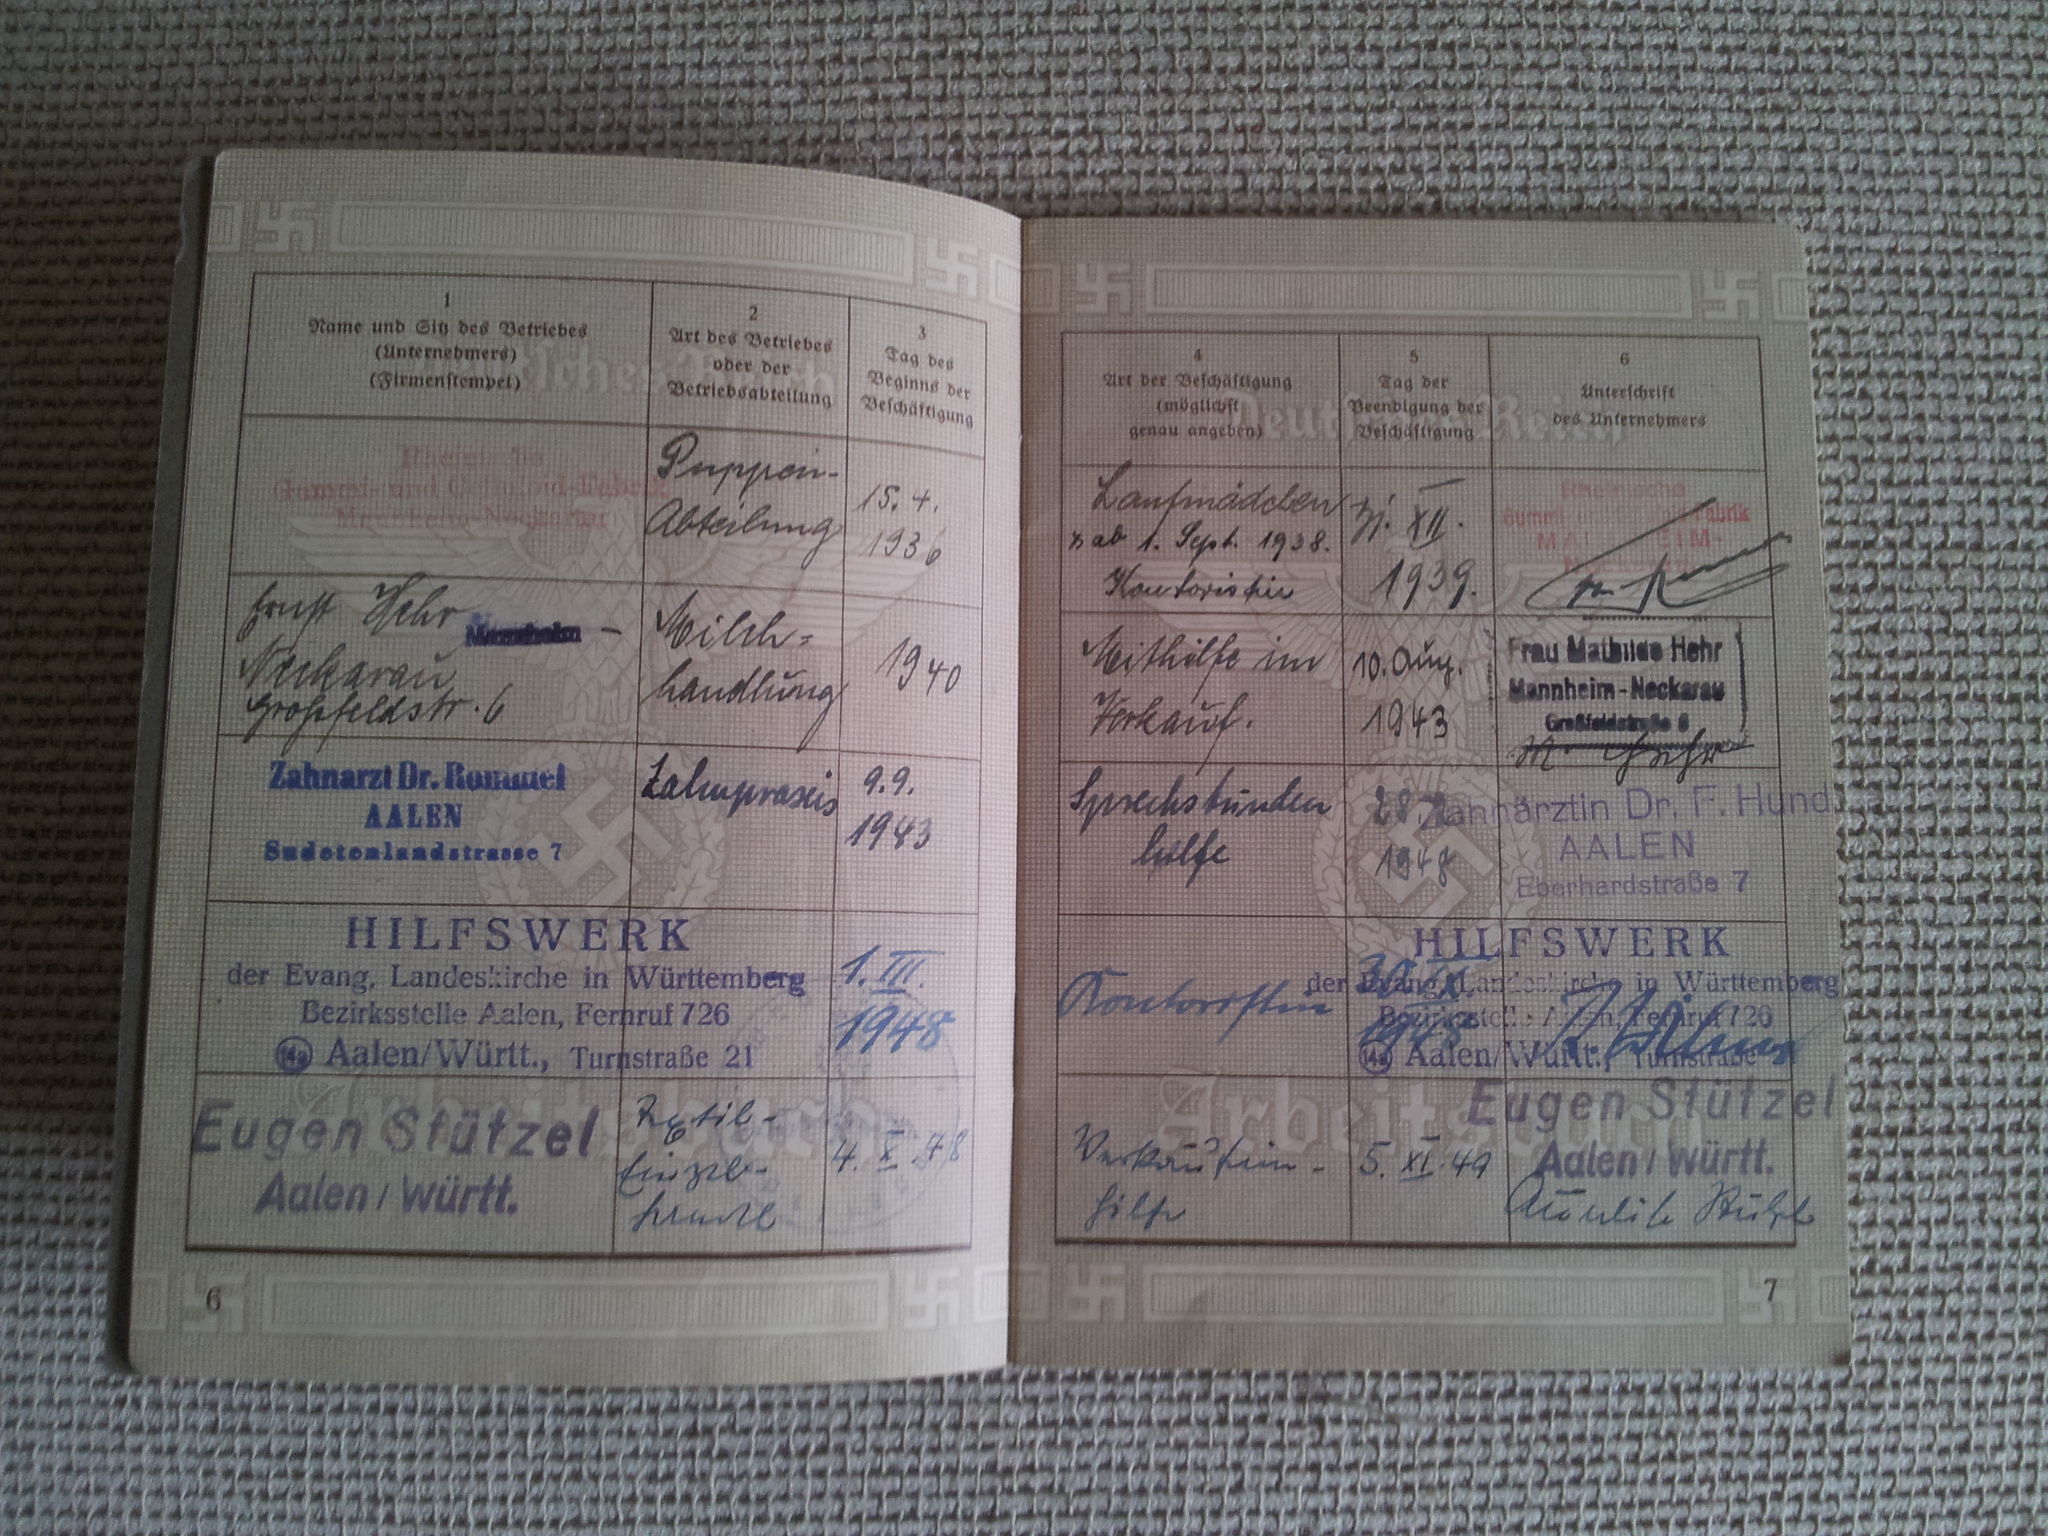 1
Name und Sitz des Betriebes
(Unternehmers)
(Firmenstempel)
2
Art des Betriebes
oder der
Betriebsabteilung
3
Tag des
Beginns der
Beschäftigung
Rheinische
Gummi- und Celluloid-Fabrik
Mannheim-Neckarau
Puppen-
Abteilung
15. 4.
1936
Ernst Hehr Mannheim –
Neckarau
Großfeldstr. 6
Milch=
handlung
1940
Zahnarzt Dr. Rommel
AALEN
Sudetenlandstrasse 7
Zahnpraxis
9.9.
1943
HILFSWERK
der Evang. Landeskirche in Württemberg
Bezirksstelle Aalen, Fernruf 726
14a Aalen/Württ., Turnstraße 21
1. III.
1948
Eugen Stützel
Aalen / Württ.
Textil-
Einzel-
handel
4. X. 48
Arbeitsbuch
6
4
Art der Beschäftigung
(möglichst
genau angeben)
5
Tag der
Beendigung der
Beschäftigung
6
Unterschrift
des Unternehmers
Deutsches Reich
Laufmädchen
ab 1. Sept. 1938.
Kontoristin
31. XII.
1939.
Rheinische
Gummi- und Celluloid-Fabrik
MANNHEIM-
Neckarau
Mithilfe im
Verkauf.
10. Aug.
1943
Frau Mathilde Hehr
Mannheim-Neckarau
Großfeldstraße 6
M. Hehr
Sprechstunden
hilfe
28.
1948
Zahnärztin Dr. F. Hund
AALEN
Eberhardstraße 7
Kontoristin
30. IX.
1948
HILFSWERK
der Evang. Landeskirche in Württemberg
Bezirksstelle Aalen, Fernruf 726
14a Aalen/Württ., Turnstraße 21
Verkäuferin-
hilfe
5. XI. 49
Eugen Stützel
Aalen / Württ.
Stützel
Arbeitsbuch
7